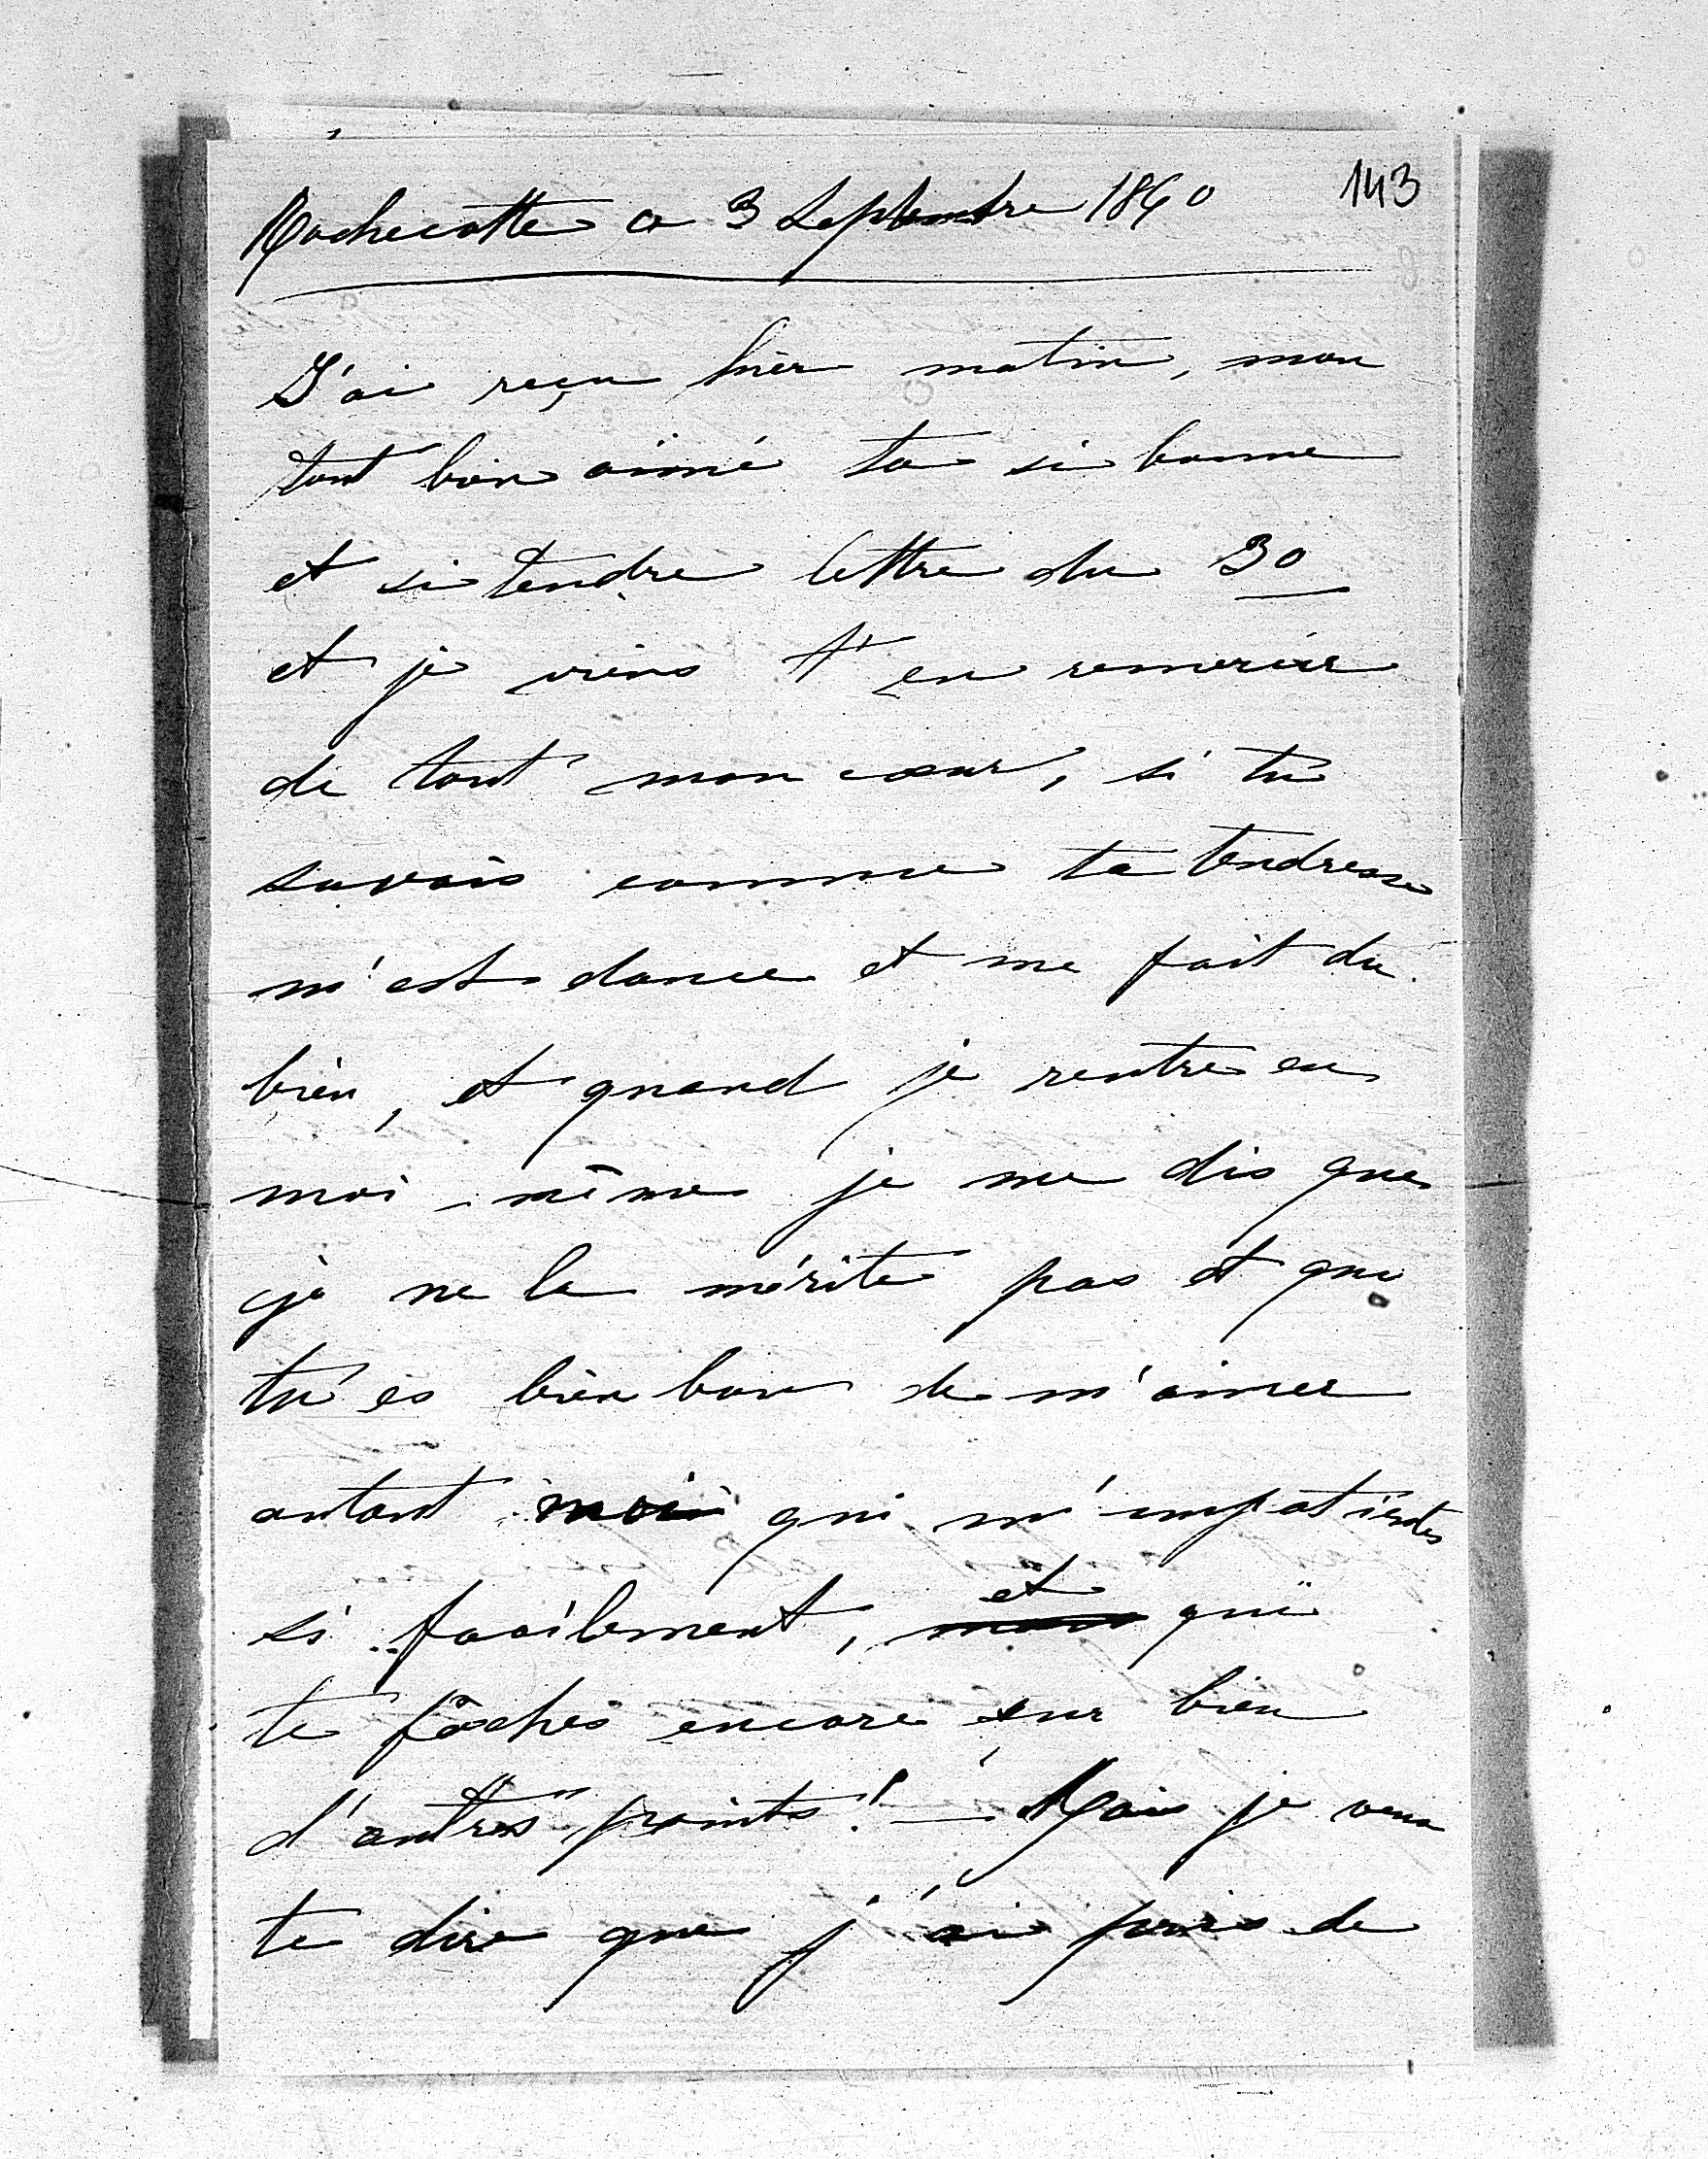 143
Rochecotte ce 3 Septembre 1860
J'ai reçu hier matin, mon
tout bien aimé ta si bonne
et si tendre lettre du 30
et je viens t'en remercier
de tout mon cœur, si tu
savais comme ta tendresse
m'est douce et me fait du
bien, et quand je rentre en
moi-même je me dis que
je ne la mérite pas et que
tu es bien bon de m'aimer
autant moi qui m'impatientes
si facilement, et qui
te fâches encore sur bien
d'autres points! — Mais je veux
te dire que j'ai pris de